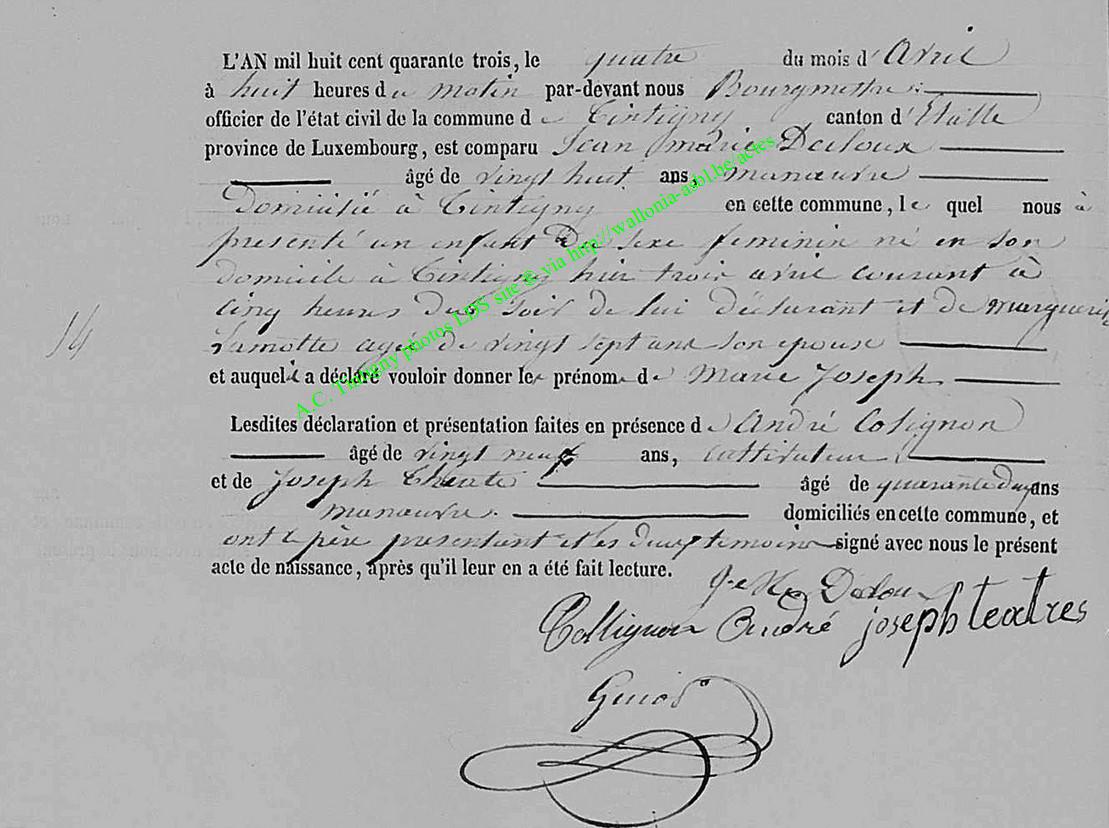 L'AN mil huit cent quarante trois, le quatre du mois d'Avril
à huit heures du matin par-devant nous Bourgmestre
officier de l'état civil de la commune de Tintigny canton d'Etalle
province de Luxembourg, est comparu Jean marie Deloux
âgé de vingt huit ans, manœuvre
Domicilié à Tintigny en cette commune, le quel nous à
presenté un enfant de sexe feminin né en son
domicile à Tintigny hier trois avril courant à
cinq heures du soir de lui déclarant et de marguerite
Lamotte agée de vingt sept ans son epouse
14
et auquel il a déclaré vouloir donner les prénoms de Marie Joseph
Lesdites déclaration et présentation faites en présence de André Colignon
âgé de vingt neuf ans, instituteur
et de Joseph âgé de quarante deux ans
manœuvre domiciliés en cette commune, et
ont le père presentant et les deux temoins signé avec nous le présent
acte de naissance, après qu'il leur en a été fait lecture.
Collignon André joseph teatres
A.C. Tintigny photos LDS site © via http://wallonia-asbl.be/actes